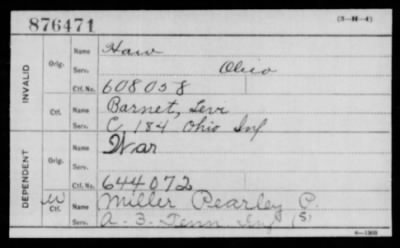 876471
INVALID
Orig.
Name Haw
Serv. Ohio
Ctf. No. 608058
Ctf.
Name Barnet, Levi
Serv. C, 184 Ohio Inf
DEPENDENT
Orig.
Name War
Serv.
Ctf. No. 644072
W
Ctf.
Name Miller Pearley P.
Serv. A. 3. Tenn Inf (S)